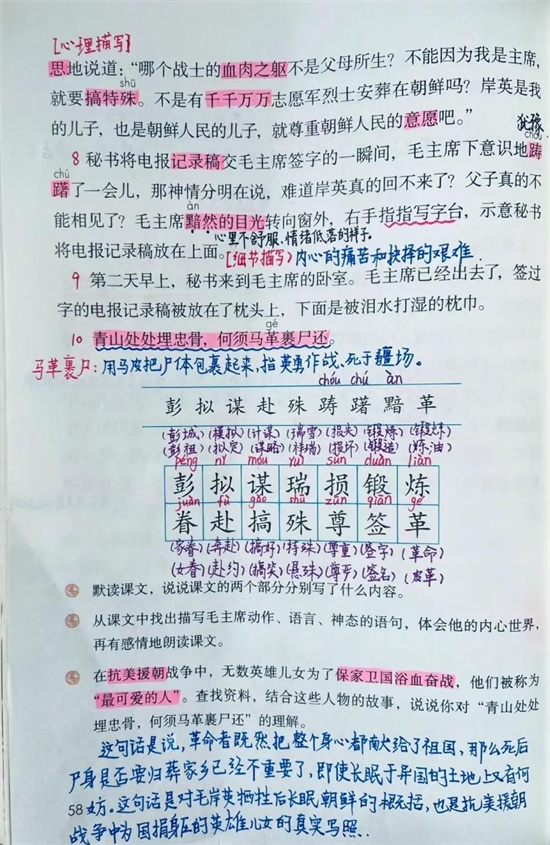 [心理描写]
思地说道：“哪个战士的血肉之躯不是父母所生？不能因为我是主席，
shū
就要搞特殊。不是有千千万万志愿军烈士安葬在朝鲜吗？岸英是我
的儿子，也是朝鲜人民的儿子，就尊重朝鲜人民的意愿吧。”
犹豫
chóu
8 秘书将电报记录稿交毛主席签字的一瞬间，毛主席下意识地踌
chú
躇了一会儿，那神情分明在说，难道岸英真的回不来了？父子真的不
àn
能相见了？毛主席黯然的目光转向窗外，右手指指写字台，示意秘书
心里不舒服，情绪低落的样子
将电报记录稿放在上面。[细节描写] 内心的痛苦和抉择的艰难
9 第二天早上，秘书来到毛主席的卧室。毛主席已经出去了，签过
字的电报记录稿被放在了枕头上，下面是被泪水打湿的枕巾。
gé
10 青山处处埋忠骨，何须马革裹尸还。
马革裹尸：用马皮把尸体包裹起来，指英勇作战、死于疆场。
chóu chú àn
彭 拟 谋 赴 殊 踌 躇 黯 革
(彭城) (模拟) (计谋) (瑞雪) (损失) (锻炼) (锻炼)
(彭祖) (拟定) (谋略) (祥瑞) (损坏) (锻造) (炼油)
péng nǐ móu ruì sǔn duàn liàn
彭 拟 谋 瑞 损 锻 炼
juàn fù gǎo shū zūn qiān gé
眷 赴 搞 殊 尊 签 革
(家眷) (奔赴) (搞好) (特殊) (尊重) (签字) (革命)
(女眷) (赴约) (搞笑) (悬殊) (尊严) (签名) (皮革)
默读课文，说说课文的两个部分分别写了什么内容。
从课文中找出描写毛主席动作、语言、神态的语句，体会他的内心世界，
再有感情地朗读课文。
在抗美援朝战争中，无数英雄儿女为了保家卫国浴血奋战，他们被称为
“最可爱的人”。查找资料，结合这些人物的故事，说说你对“青山处处
埋忠骨，何须马革裹尸还”的理解。
这句话是说，革命者既然把整个身心都献给了祖国，那么死后
尸身是否要归葬家乡已经不重要了，即使长眠于异国的土地上又有何
58 妨。这句话是对毛岸英牺牲后长眠朝鲜的概括，也是抗美援朝
战争中为国捐躯的英雄儿女的真实写照.